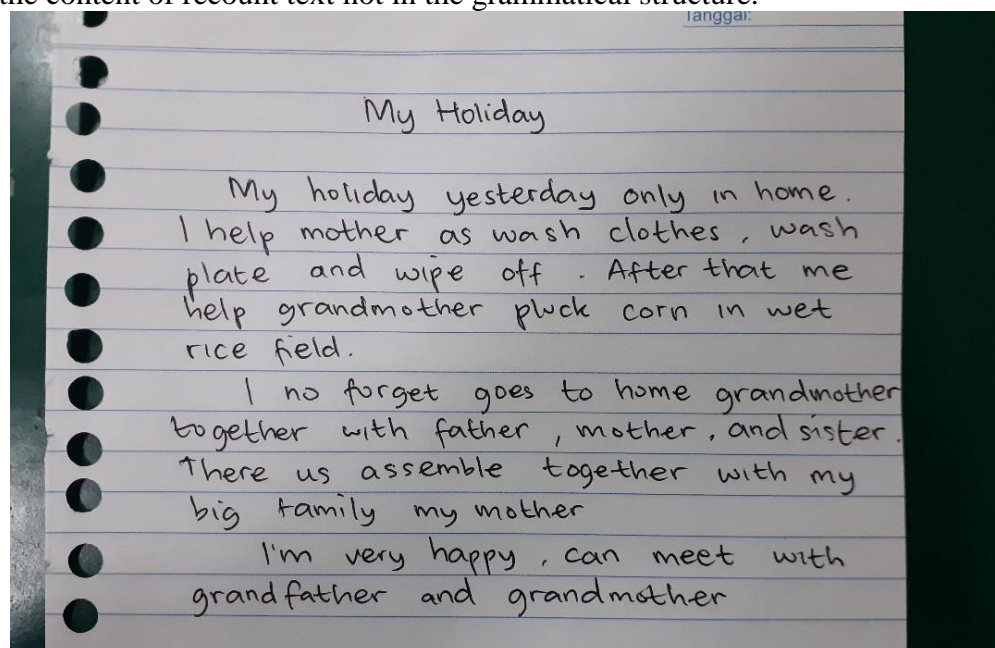 the content of recount text not in the grammatical structure.
Tanggal:
My Holiday
My holiday yesterday only in home.
I help mother as wash clothes, wash
plate and wipe off. After that me
help grandmother pluck corn in wet
rice field.
I no forget goes to home grandmother
together with father, mother, and sister.
There us assemble together with my
big family my mother
I'm very happy, can meet with
grandfather and grandmother